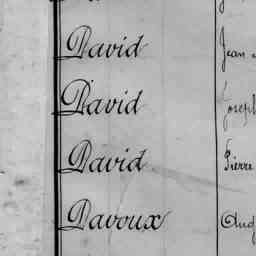 David Jean
David Joseph
David Pierre
Davoux